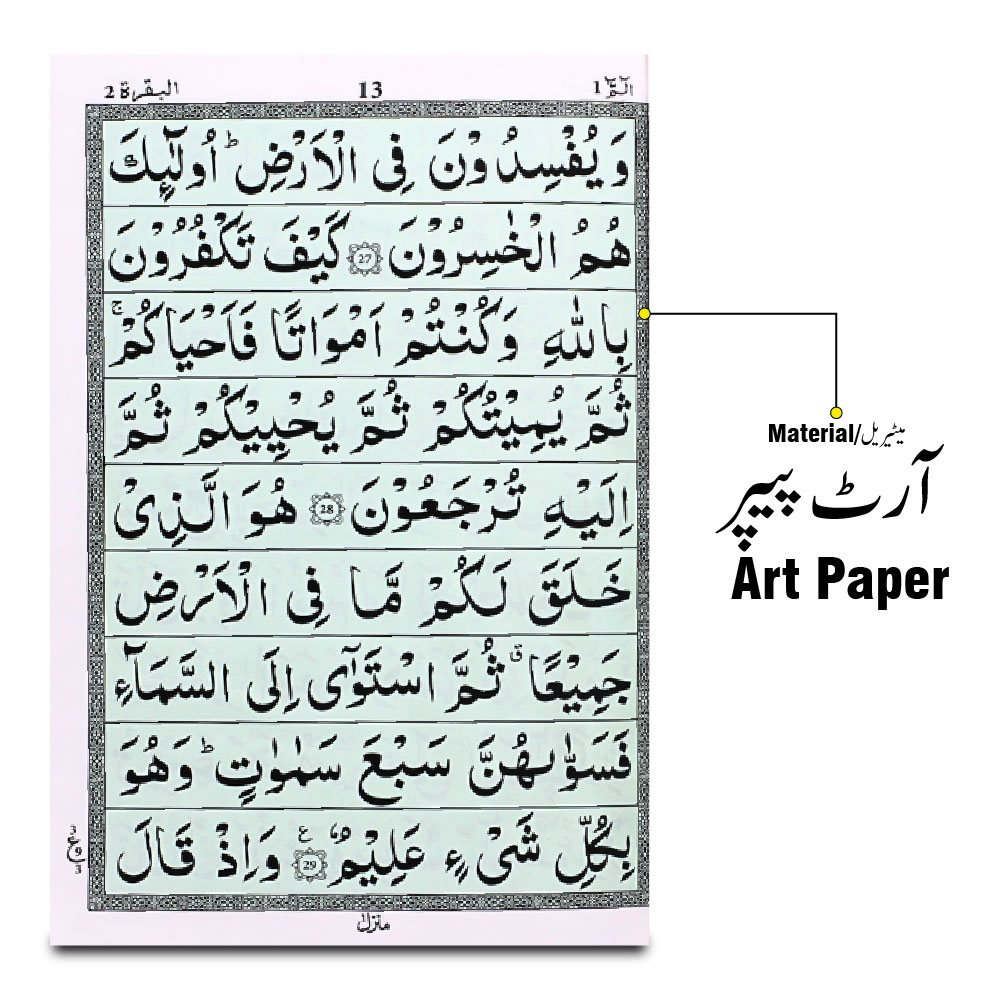 الٓمّٓ 1
13
البقرة 2
وَ يُفْسِدُوْنَ فِى الْاَرْضِ ؕ اُولٰٓئِكَ
هُمُ الْخٰسِرُوْنَ 27 كَيْفَ تَكْفُرُوْنَ
بِاللّٰهِ وَكُنْتُمْ اَمْوَاتًا فَاَحْيَاكُمْ ۚ
ثُمَّ يُمِيْتُكُمْ ثُمَّ يُحْيِيْكُمْ ثُمَّ
اِلَيْهِ تُرْجَعُوْنَ 28 هُوَ الَّذِىْ
خَلَقَ لَكُمْ مَّا فِى الْاَرْضِ
جَمِيْعًا ق ثُمَّ اسْتَوٰٓى اِلَى السَّمَآءِ
فَسَوّٰىهُنَّ سَبْعَ سَمٰوٰتٍ ؕ وَهُوَ
بِكُلِّ شَىْءٍ عَلِيْمٌ 29 ع وَاِذْ قَالَ
منزل
Material/میٹیریل
آرٹ پیپر
Art Paper